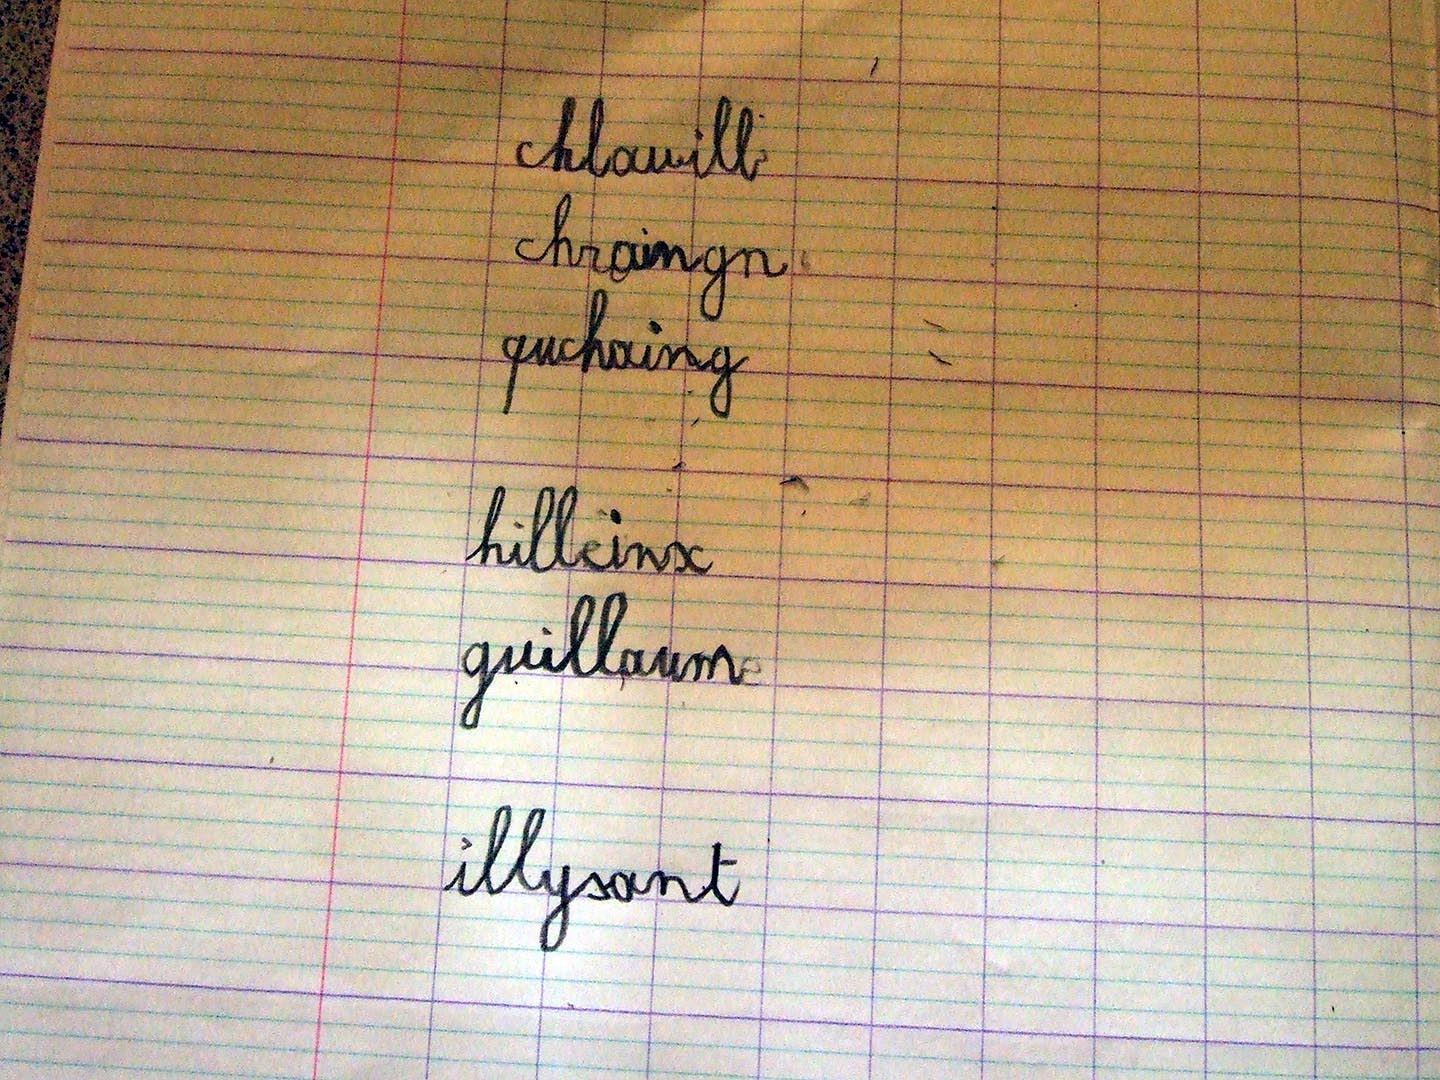 chlawill
chraingn
quchaing
hilleinx
guillaume
illysant